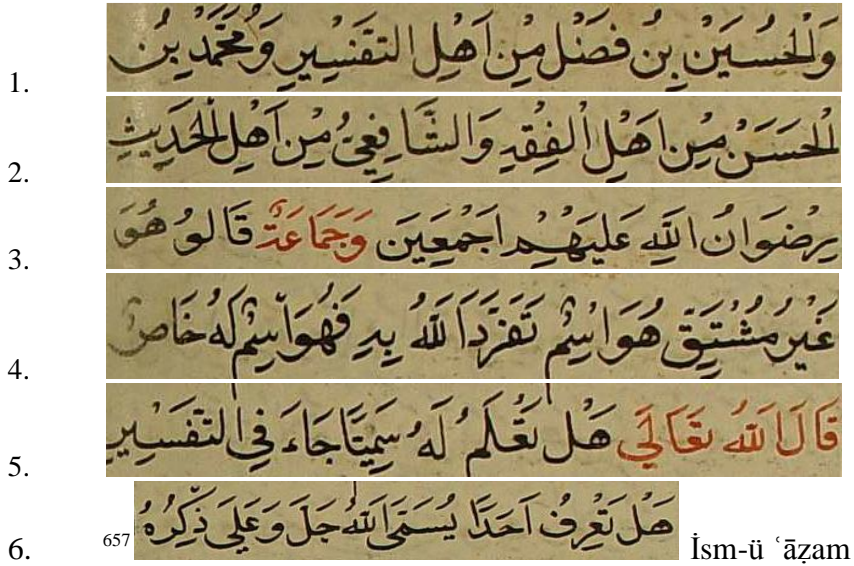 1. وَالْحُسَيْن بِنُ فَضْل مِنْ اَهْلِ التَفْسِيرِ وَمُحَمَّد بِنُ
2. الْحَسَنْ مِن اَهْلِ الْفِقْهِ وَالشَّافِعِىُّ مِنْ اَهْلِ الْحَدِيثِ
3. رِضْوَانُ اللّٰهِ عَلَيْهِمْ اَجْمَعِينَ وَجَمَاعَةٌ قَالُو هُوَ
4. غَيْرُ مُشْتَقٍّ هُوَ اِسْمٌ تَفَرَّدَ اللّٰهُ بِهِ فَهُوَ اِسْمٌ لَهُ خَاصٌّ
5. قَالَ اللّٰهُ تَعَالَى هَلْ تَعْلَمُ لَهُ سَمِيّاً جَاءَ فِى التَفْسِيرِ
6. 657 هَلْ تَعْرِفُ اَحَدًا يُسَمَّى اللّٰهُ جَلَ وَعَلَى ذِكْرُهُ İsm-ü ʿāẓam